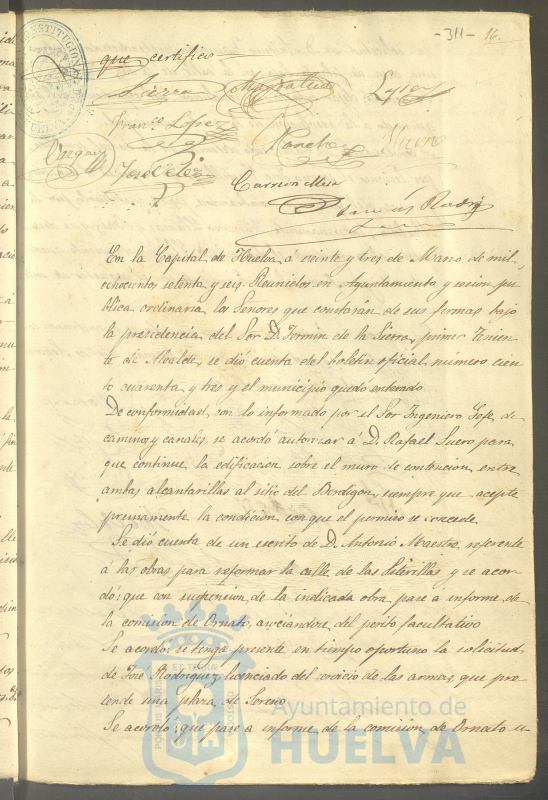 -311- 16.
que certifico
Sierra
Lopez
Franco Lopez
Vargas
Sanchez
José Velez
Carrion Mesa
En la Capital de Huelva á veinte y tres de Marzo de mil
ochocientos setenta y seis. Reunidos en Ayuntamiento y sesion pu
blica ordinaria los Señores que constarán de sus firmas bajo
la presidencia del Sor. D. Fermin de la Sierra, primer Tenien
te de Alcalde, se dió cuenta del boletin oficial número cien
to cuarenta y tres y el municipio quedo enterado
De conformidad con lo informado por el Sor Ingeniero Gefe de
caminos y canales se acordó autorizar á D. Rafael Suero para
que continue la edificacion sobre el muro de contencion entre
ambas alcantarillas al sitio del Berdigon, siempre que acepte
previamente la condicion con que el permiso se concede.
Se dió cuenta de un escrito de D. Antonio Maestre, referente
á las obras para reformar la calle de las
y se acor
dó: que con suspension de la indicada obra pase á informe de
la comision de Ornato, asociandose del perito facultativo
Se acordó: se tenga presente en tiempo oportuno la solicitud
de José Rodriguez licenciado del servicio de las armas que pre
tende una plaza de Sereno
Se acordó: que pase á informe de la comision de Ornato u
Ayuntamiento de
HUELVA